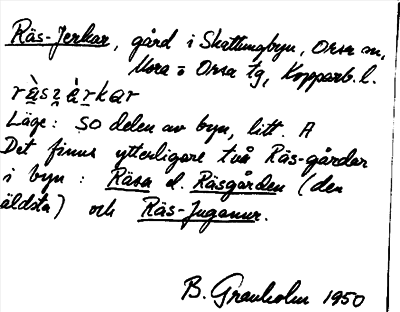 Räs-Jerkar, gård i Skattungbyn, Orsa sn,
Mora o Orsa tg, Kopparb. l.
Läge: SO delen av byn, litt. A
Det finns ytterligare två Räs-gårdar
i byn: Räsa el. Räsgården (den
äldsta) och Räs-Juganur.
B. Granholm 1950